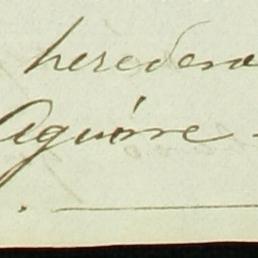 heredero
Aguirre -